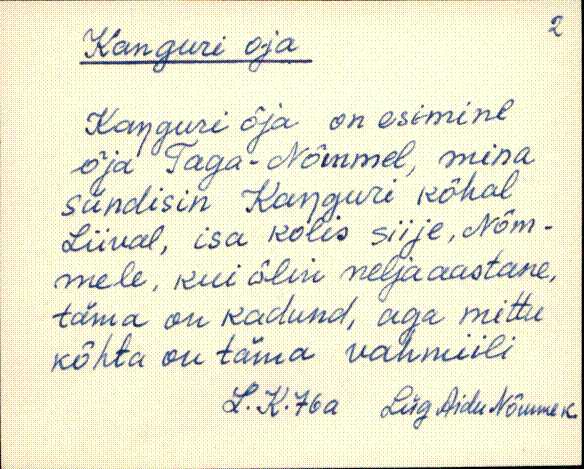 2
Kanguri oja
Kaŋguri õja on esimine
õja Taga-Nõmmel, mina
sündisin Kaŋguri kõhal
Liival, isa kolis siije, Nõm-
mele, kui õlin neljaaastane,
täma on kadund, aga mittu
kõhta on täma vahmiili
L. K. 76a Lüg Aidu Nõmme k